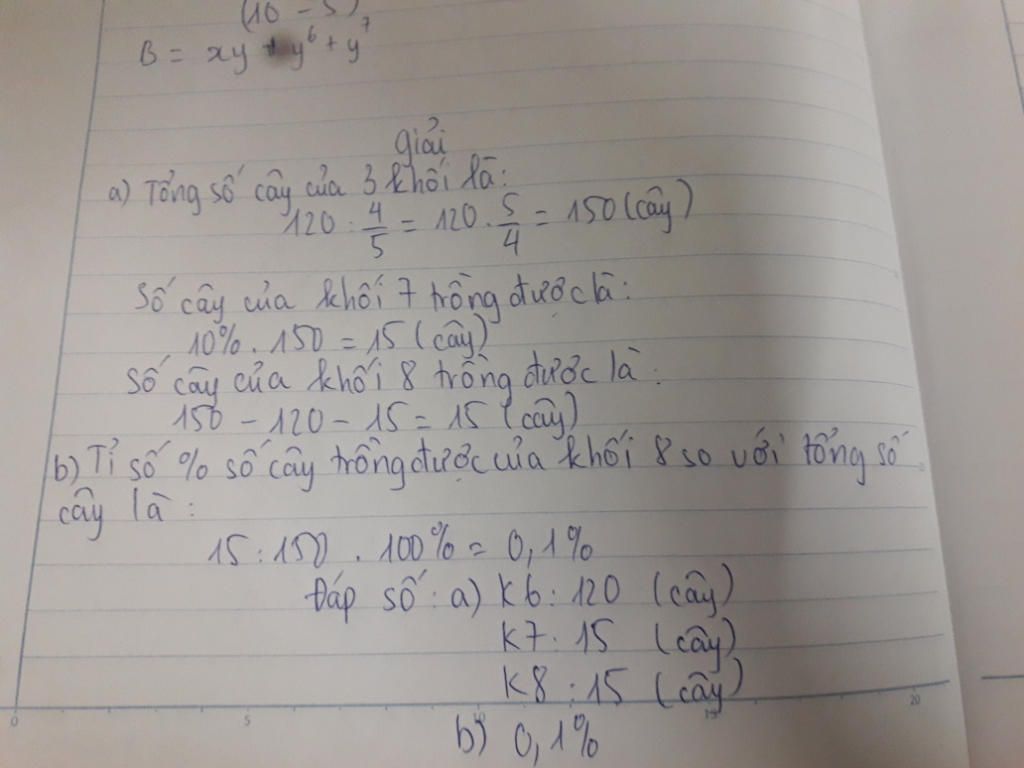 (10 - 5)
B = xy + y⁶ + y⁷
Giải
a) Tổng số cây của 3 khối là:
120 : 4/5 = 120 . 5/4 = 150 (cây)
Số cây của khối 7 trồng được là:
10% . 150 = 15 (cây)
Số cây của khối 8 trồng được là:
150 - 120 - 15 = 15 (cây)
b) Tỉ số % số cây trồng được của khối 8 so với tổng số
cây là:
15 : 150 . 100% = 0,1%
Đáp số: a) K6 : 120 (cây)
K7 : 15 (cây)
K8 : 15 (cây)
0 5 15 20
b) 0,1%